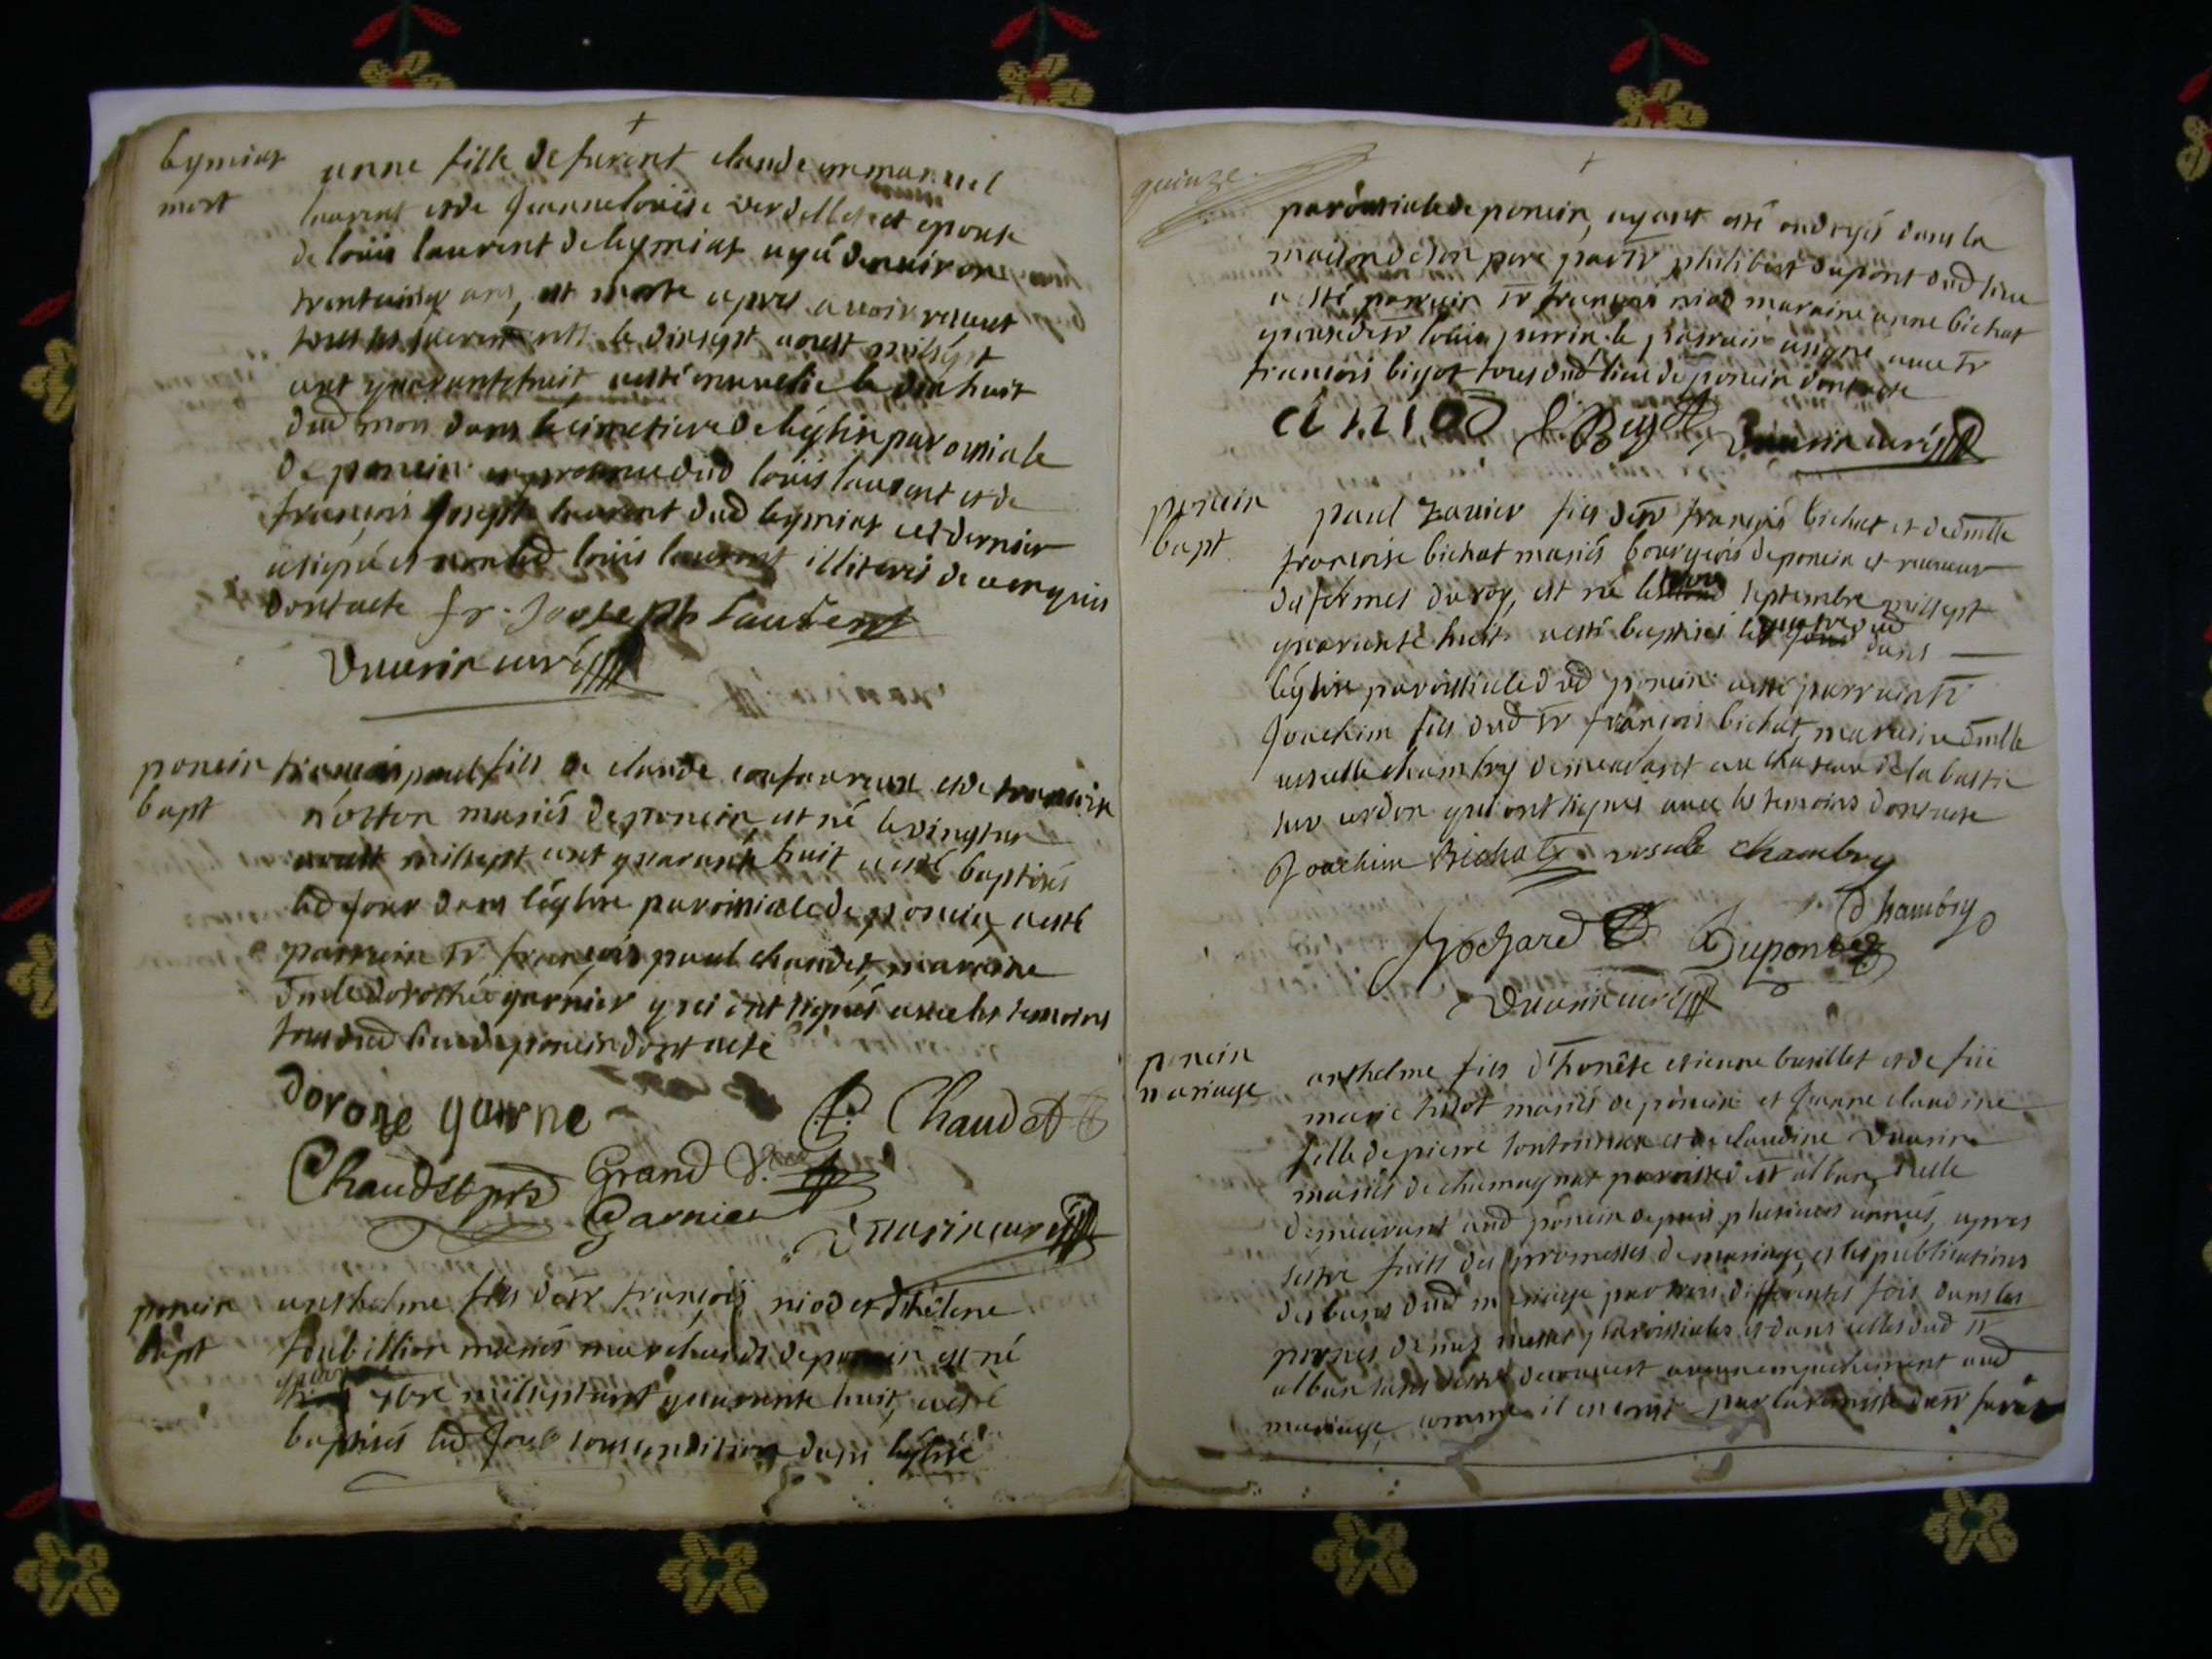 leymiat
mort
anne fille de furent claude emmanuel
laurent et de Jeanne louise verdellet et epouse
de louis laurent de leymiat agé denviron
trentecinq ans, est morte apres avoir receut
tous les sacrements le dixsept aoust milsept
cent quarantehuit aesté enuvelie le dixhuit
dud mois dans le cimetiere de léglise paroissiale
de poncin en presence dud louis laurent et de
françois Joseph laurent dud leymiat cet dernier
asigné et non led louis laurent illiteré de ce enquis
dont acte fr. Joseph laurent
curé
poncin
bapt
françois paul fils de claude et de françoise
mariés de poncin, est né le vingtun
aoust milsept cent quarante huit aesté baptisés
led jour dans léglise paroissiale de poncin, aesté
parrain sr françois paul chaudet, marraine
dmlle dorothée garnier qui ont signés avec les temoins
tous dud lieu de poncin dont acte
doroze garne
Chaudet
Chaudet Grand
Garnier
curé
poncin
bapt
anthelme fils de sr françois niod et dhélene
mariés marchands de poncin est né
quatre
7bre millseptcent quarante huit, aesté
baptisés led Jour sous condition dans léglise
quinze
paroissiale de poncin, ayant esté ondoyés dans la
maison de son pere par sr philibert dupont dud lieu
aesté parrain sr françois niod maraine anne bichat
epouse de sr louis perrin. le parrain asigné avec sr
francois bigot tous dud lieu de poncin dont acte
niod
curé
poncin
bapt
paul Xavier fils de sr françois bichat et de dmlle
françoise bichat mariés bourgeois de poncin et receveur
des fermes du roy, est né le septembre milsept
quarante huit aesté baptisés le quatre dud
dans
léglise paroissiale dud poncin aesté parrain sr
Joachim fils dud sr françois bichat, maraine dmlle
ursulle chambry demeurant au chateau de la bastie
sur cerdon qui ont signés avec les temoins dont acte
Joachim Bichat ursule chambry
Chambry
Gochard Dupont
curé
poncin
mariage
anthelme fils d'honéte etienne busillet et de feüe
marie tissot mariés de poncin et Jeanne claudine
fille de pierre et de claudine
mariés de chamagnat paroisse de st alban, elle
demeurant aud poncin depuis plusieurs années, apres
sestre faits des promesses de mariage, et les publications
des bans dud mariage par trois differentes fois dans les
prones de nos messes paroissiales et dans celles dud st
alban sans sestre decouvert aucun empechement aud
mariage, comme il par la remisse de sr